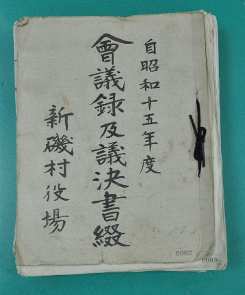 自昭和十五年度
會議録及議決書綴
新磯村役場